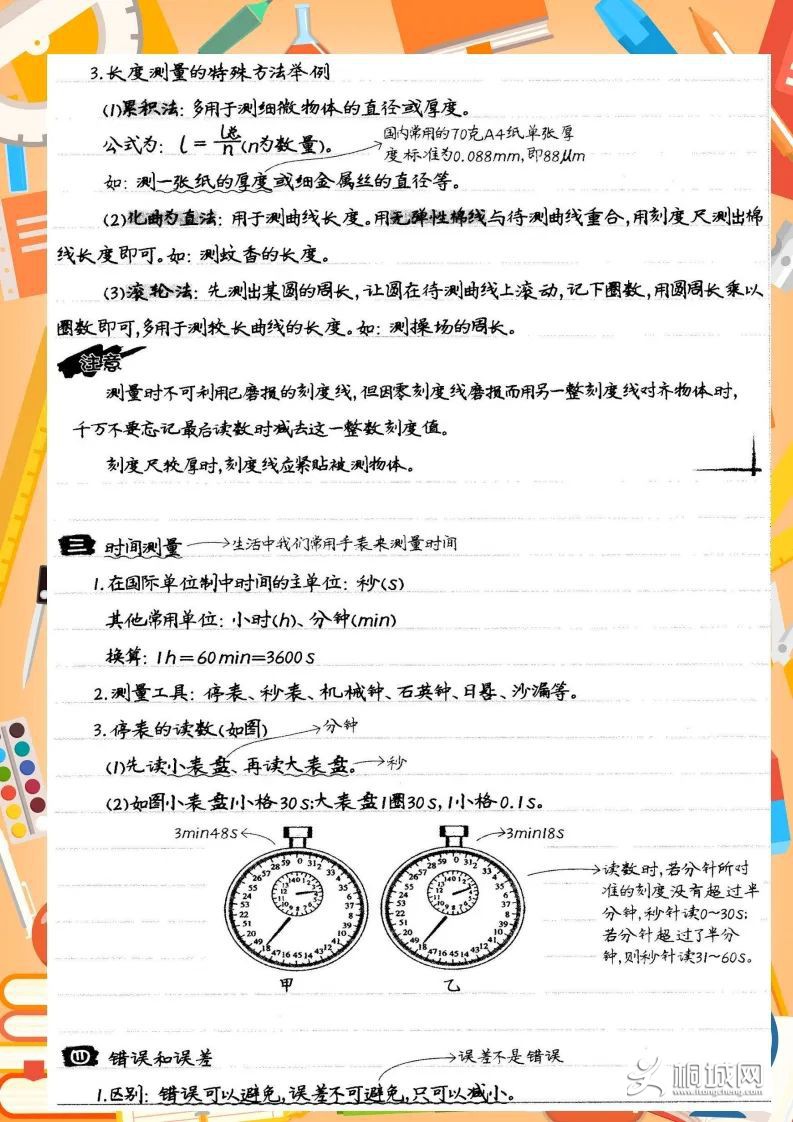 3.长度测量的特殊方法举例
(1)累积法:多用于测细微物体的直径或厚度。
公式为: l = L总/n (n为数量)。
国内常用的70克A4纸单张厚
度标准为0.088mm,即88μm
如:测一张纸的厚度或细金属丝的直径等。
(2)化曲为直法:用于测曲线长度。用无弹性棉线与待测曲线重合,用刻度尺测出棉
线长度即可。如:测蚊香的长度。
(3)滚轮法:先测出某圆的周长,让圆在待测曲线上滚动,记下圈数,用圆周长乘以
圈数即可,多用于测较长曲线的长度。如:测操场的周长。
注意
测量时不可利用已磨损的刻度线,但因零刻度线磨损而用另一整刻度线对齐物体时,
千万不要忘记最后读数时减去这一整数刻度值。
刻度尺较厚时,刻度线应紧贴被测物体。
三 时间测量→生活中我们常用手表来测量时间
1.在国际单位制中时间的主单位:秒(s)
其他常用单位:小时(h)、分钟(min)
换算:1h=60min=3600s
2.测量工具:停表、秒表、机械钟、石英钟、日晷、沙漏等。
3.停表的读数(如图)→分钟
(1)先读小表盘、再读大表盘。→秒
(2)如图小表盘1小格30s;大表盘1圈30s,1小格0.1s。
3min48s
3min18s
读数时,若分针所对
准的刻度没有超过半
分钟,秒针读0~30s;
若分针超过了半分
钟,则秒针读31~60s。
甲
乙
四 错误和误差
误差不是错误
1.区别:错误可以避免,误差不可避免,只可以减小。
桐城网
itongcheng.com